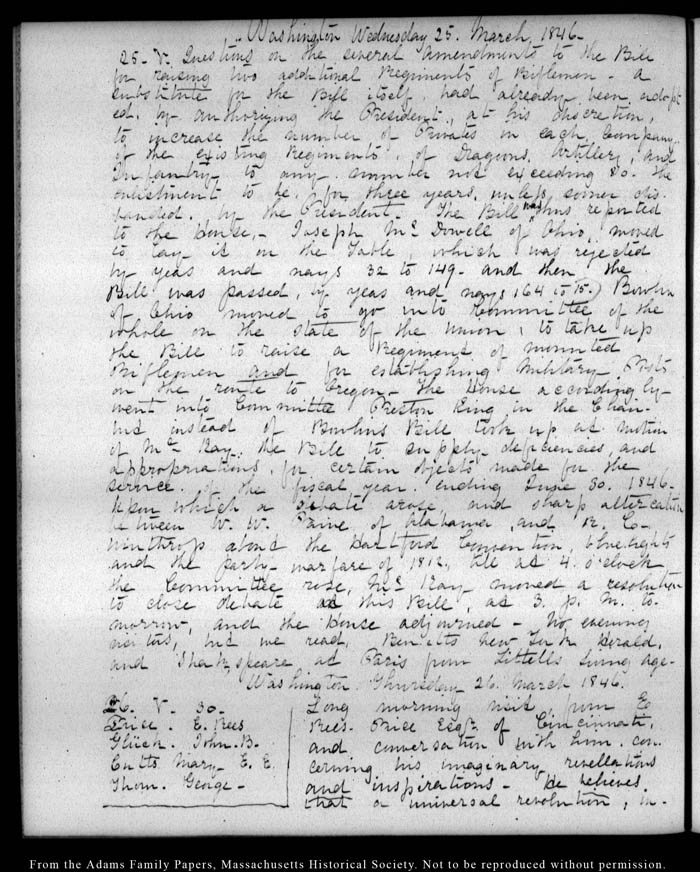 Washington Wednesday 25. March, 1846.
25. V. Questions on the several amendments to the Bill
for raising two additional Regiments of Riflemen - a
substitute for the Bill itself had already been adopt
ed, by authorizing the President, at his discretion,
to increase the number of Privates in each Company
of the existing Regiments, of Dragoons, Artillery, and
Infantry to any number not exceeding 80. the
enlistment to be for three years, unless sooner dis
banded, by the President. The Bill was thus reported
to the House,- Joseph Mc. Dowell of Ohio, moved
to lay it on the Table, which was rejected
by yeas and nays 32 to 149. and then the
Bill was passed by yeas and nays 164 to 15.) Bowlin
of Ohio moved to go into Committee of the
whole on the state of the Union, to take up
the Bill to raise a Regiment of mounted
Riflemen and for establishing military Posts
on the route to Oregon- The House accordingly
went into Committee Preston King in the Chair-
but instead of Bowlins Bill took up at motion
of Mc. Kay, the Bill to supply deficiencies, and
appropriations, for certain objects made for the
service of the fiscal year ending June 30. 1846.
upon which a debate arose, and sharp altercation
between W. W. Paine of Alabama, and R. C.
Winthrop about the Hartford Convention, blue lights
and the party warfare of 1812, till at 4. o'clock
the Committee rose, Mc. Kay moved a resolution
to close debate on this Bill, at 3. p.m. to-
morrow, and the House adjourned - No evening
visitors, but we read, Bennetts New York Herald,
and Shakspeare at Paris from Littells living age-
Washington Thursday 26. March 1846.
26. V. 30.
Price. E. Rees
Glück. John. B.
Cutts Mary- E. E.
Thom. George-
Long morning visit, from E
Rees. Price Esqr. of Cincinnati,
and conversation with him, con
cerning his imaginary revelations
and inspirations- He believes
that a universal revolution, in-
From the Adams Family Papers, Massachusetts Historical Society. Not to be reproduced without permission.